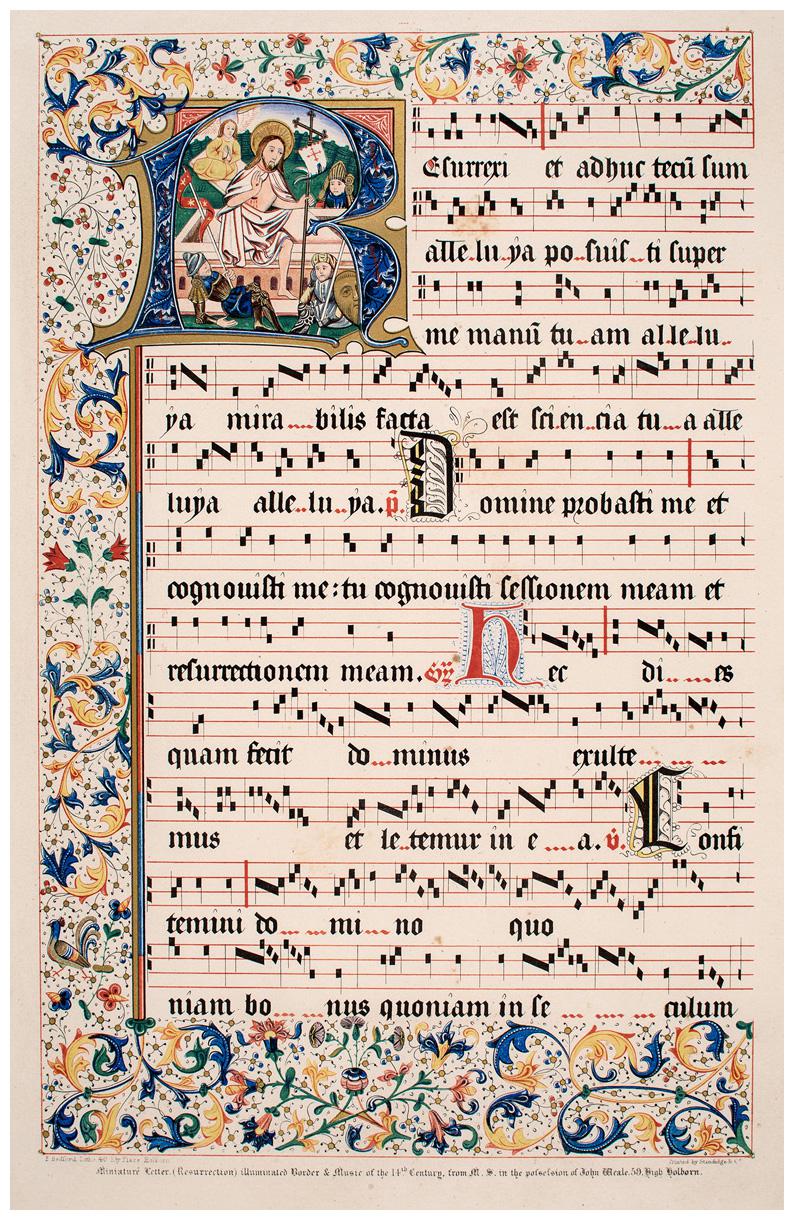 REsurrexi et adhuc tecū sum
alle..lu..ya po..suis...ti super
me manū tu...am al..le..lu..
ya mira.....bilis facta est sci..en..cia tu....a alle
luya alle..lu...ya. p̄. Domine probasti me et
cognouisti me: tu cognouisti sessionem meam et
resurrectionem meam. Hec di......es
quam fecit do....minus exulte
mus et le..temur in e.....a. v̄. Confi
temini do......mi....no quo
niam bo......nus quoniam in se culum
F. Bedford, Lith. 40 Ely Place Holborn
Printed by Standidge & Co.
Miniature Letter. (Resurrection) illuminated Border & Music of the 14th Century, from M. S. in the possession of John Weale. 59. High Holborn.